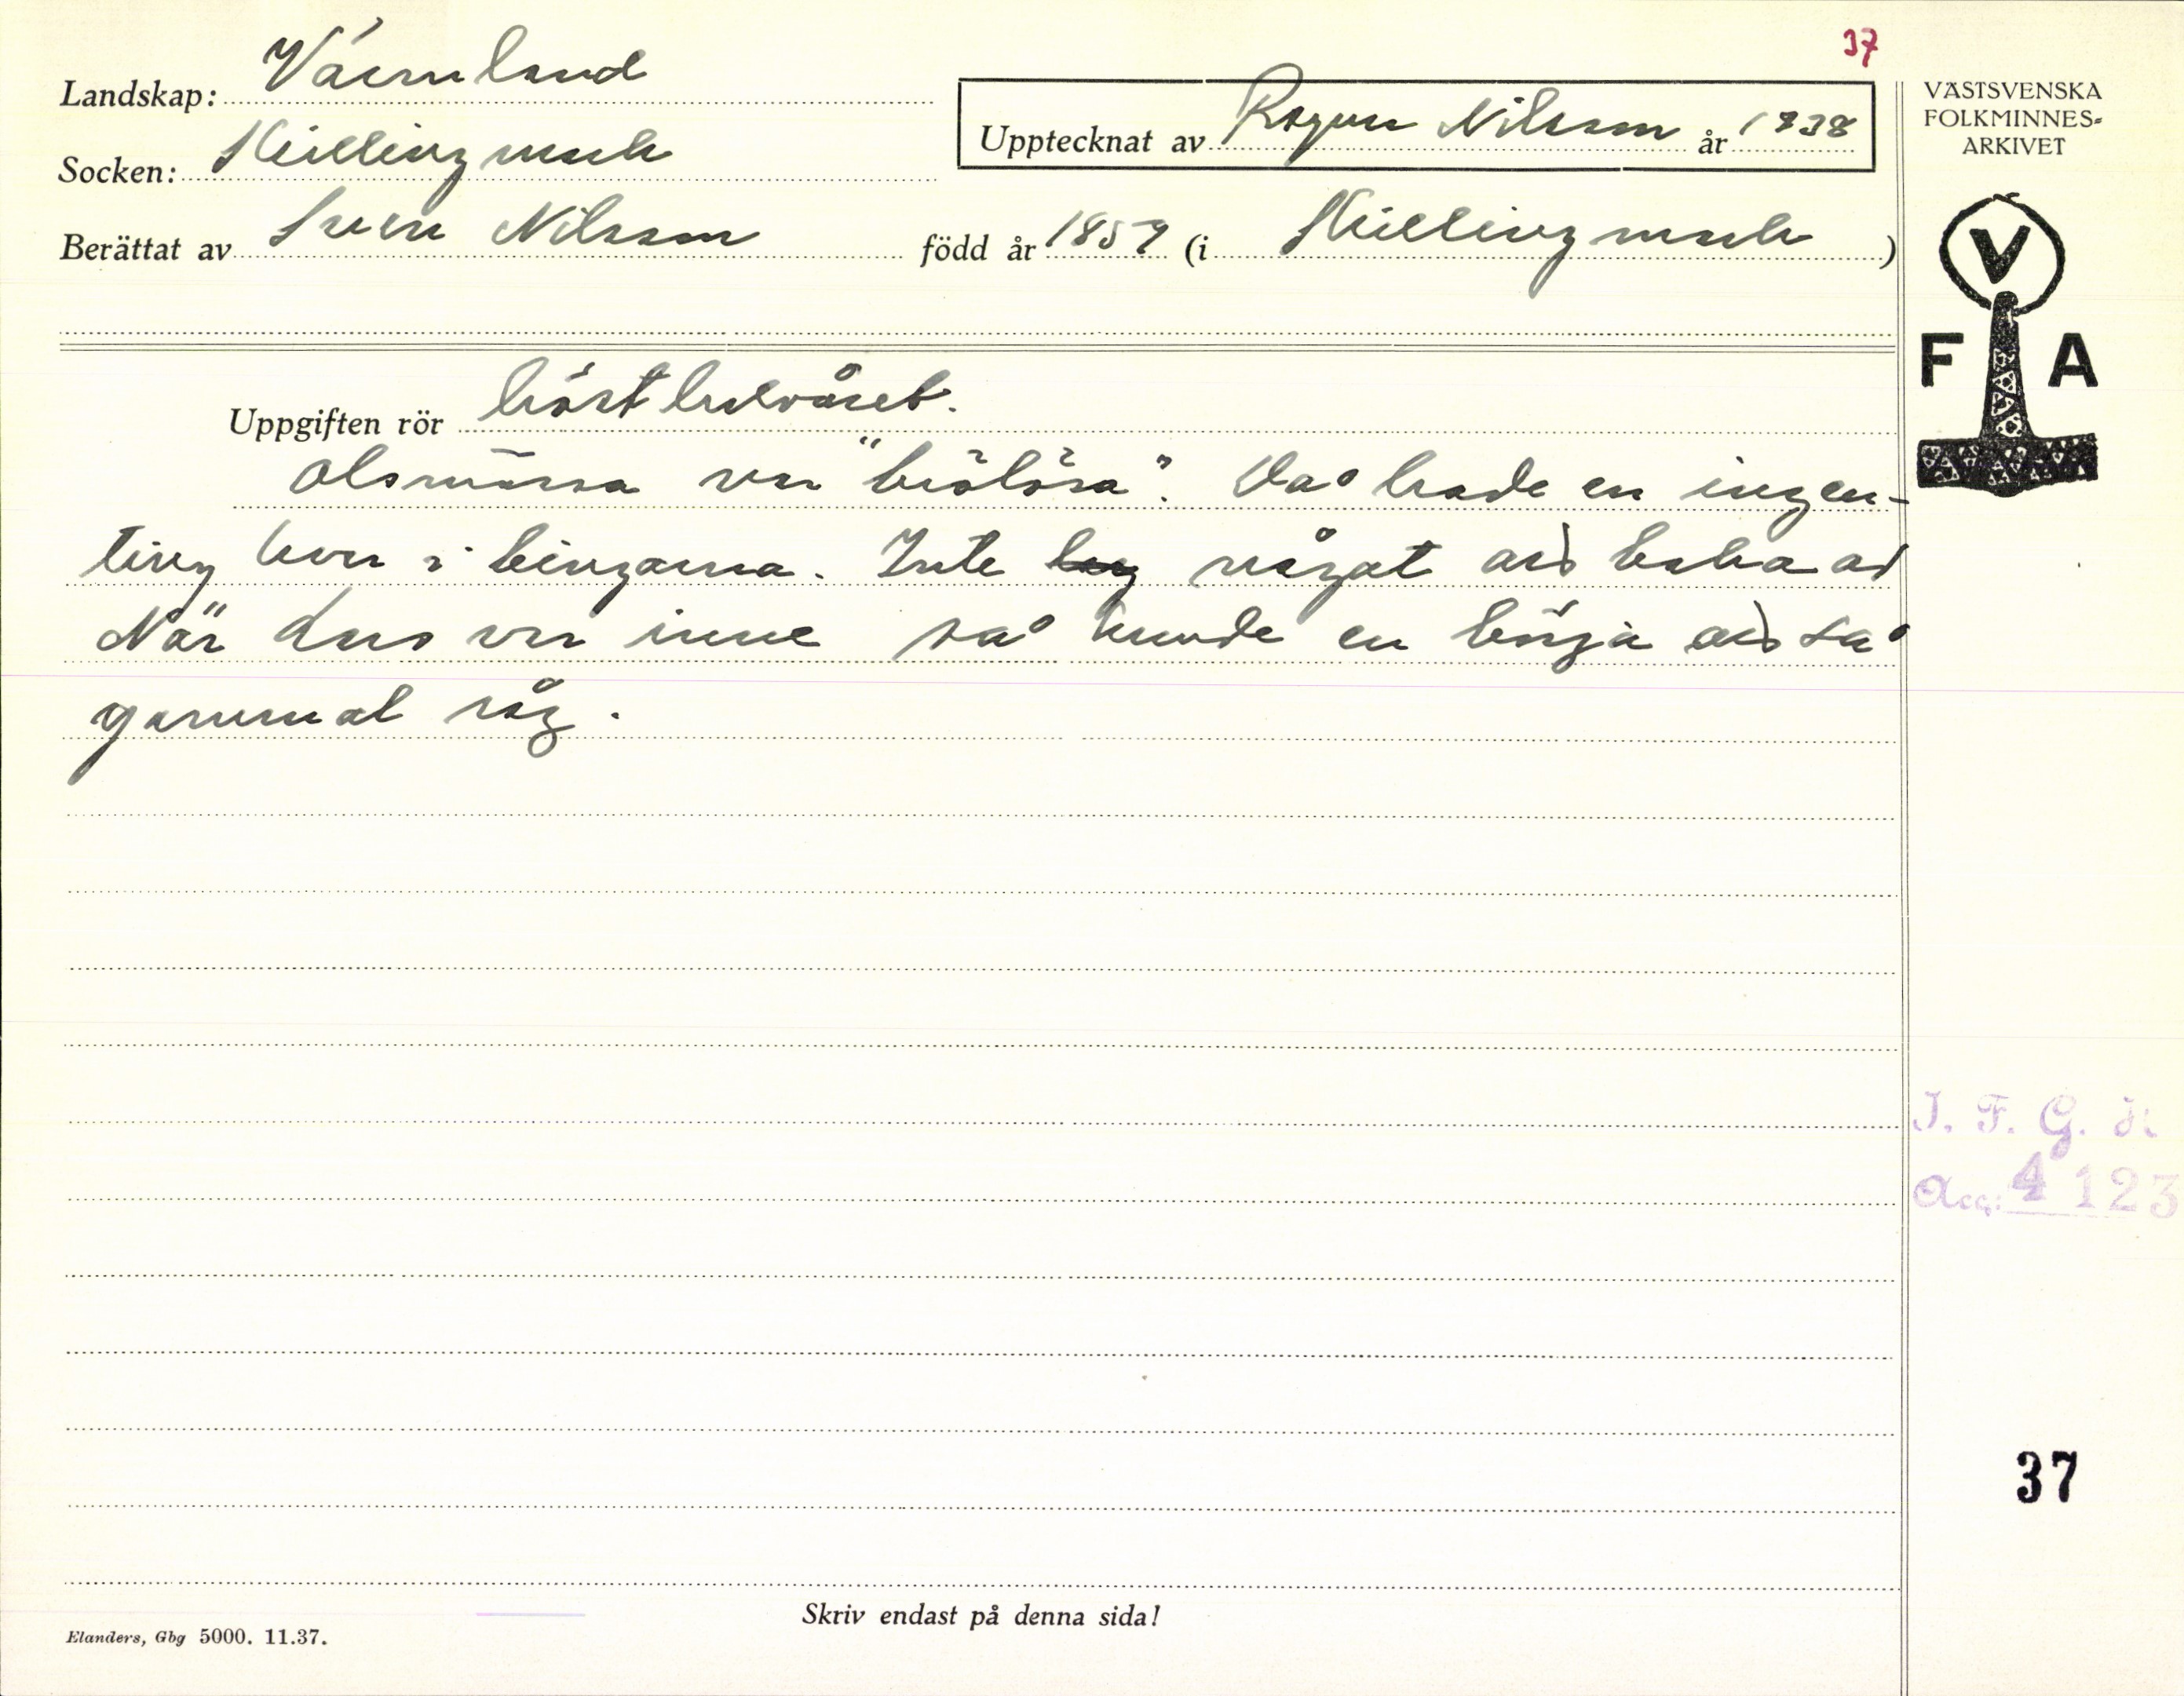 37
Landskap: Värmland
Socken: Skillingmark
Upptecknat av Ragnar Nilsson år 1938
Berättat av Sven Nilsson född år 1859 (i Skillingmark)
VÄSTSVENSKA
FOLKMINNES=
ARKIVET
V
F A
Uppgiften rör höstbesväret.
Olsmässa var "brölösa". Då hade en ingen-
ting kvar i bingarna. Inte någat aid baka av
När den var inne så kunde en börja aid så
gammal råg.
I. F. G. s:
Acc: 4 123
37
Skriv endast på denna sida!
Elanders, Gbg 5000. 11.37.